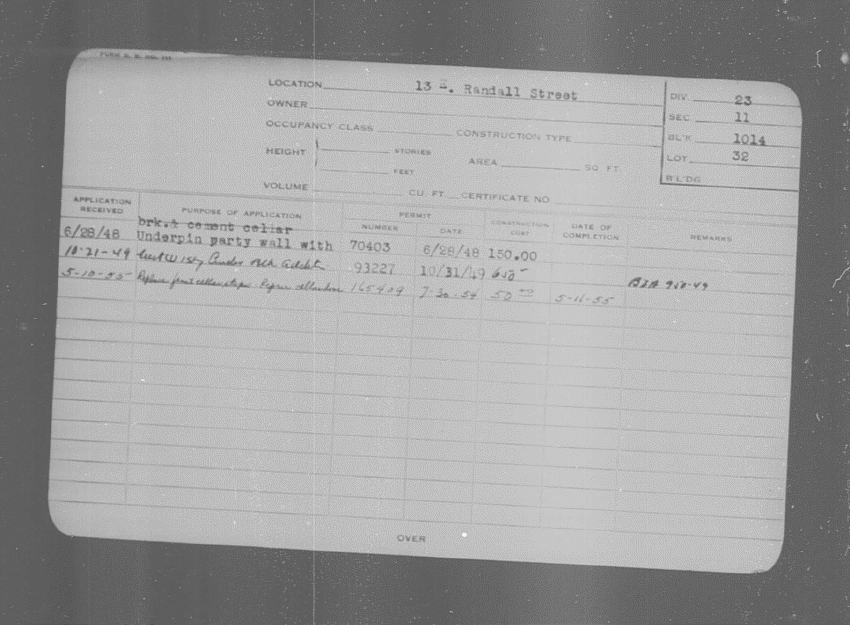 LOCATION 13 E. Randall Street
DIV. 23
OWNER
SEC. 11
OCCUPANCY CLASS CONSTRUCTION TYPE
BL'K 1014
HEIGHT STORIES FEET AREA SQ. FT.
LOT 32
B'L'DG
VOLUME CU. FT. CERTIFICATE NO
APPLICATION RECEIVED PURPOSE OF APPLICATION PERMIT NUMBER DATE CONSTRUCTION COST DATE OF COMPLETION REMARKS
brk.& cement cellar
6/28/48 Underpin party wall with 70403 6/28/48 150.00
10-21-49 1 sty 93227 10/31/49 650- BZA 950-49
5-10-55 Replace front cellar steps. Repair 165409 7-30-54 50 00 5-11-55
OVER